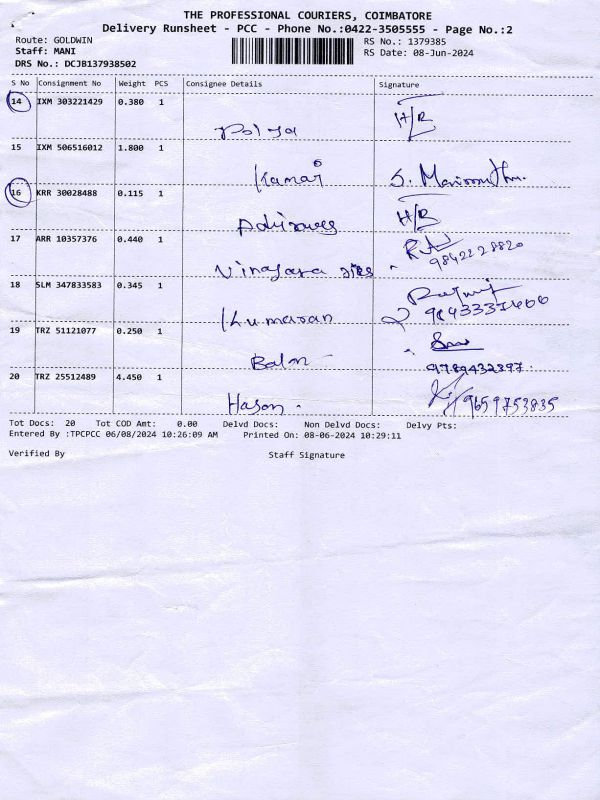 THE PROFESSIONAL COURIERS, COIMBATORE
Delivery Runsheet - PCC - Phone No.:0422-3505555 - Page No.:2
Route: GOLDWIN RS No.: 1379385
Staff: MANI RS Date: 08-Jun-2024
DRS No.: DCJB137938502
S No Consignment No Weight PCS Consignee Details Signature
14 IXM 303221429 0.380 1
H/B
15 IXM 506516012 1.800 1
Kumar
16 KRR 30028488 0.115 1
H/B
17 ARR 10357376 0.440 1
9842228820
18 SLM 347833583 0.345 1
Kumaran
19 TRZ 51121077 0.250 1
9789432897
20 TRZ 25512489 4.450 1
Hason. 9659753835
Tot Docs: 20 Tot COD Amt: 0.00 Delvd Docs: Non Delvd Docs: Delvy Pts:
Entered By :TPCPCC 06/08/2024 10:26:09 AM Printed On: 08-06-2024 10:29:11
Verified By Staff Signature